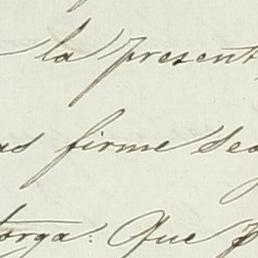 la present
firme
torga: Que